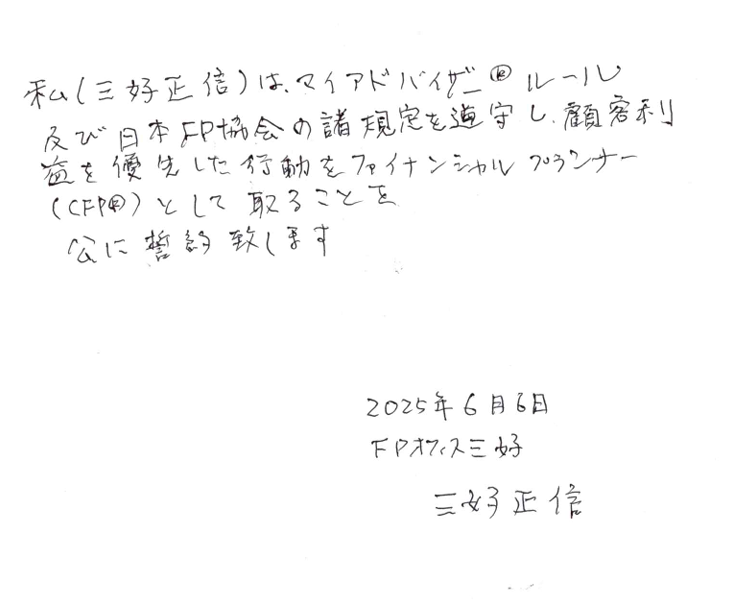 私(三好正信)は、マイアドバイザー®ルール
及び日本FP協会の諸規定を遵守し、顧客利
益を優先した行動をファイナンシャルプランナー
(CFP®)として取ることを
公に誓約致します
2025年6月6日
FPオフィス三好
三好正信